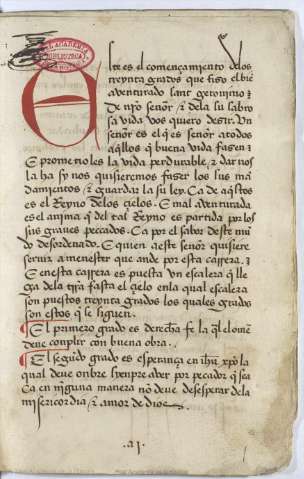 Este es el començamiento delos
treynta grados que fiso el bie
aventurado sant geronimo z
De nr̄o señor z dela su sabro
sa vida vos quiero desir. Un
señor es el q̄ es señor atodos
aq̄llos q̄ buena vida fasen z
E prometioles la vida perdurable z darnos
la ha sy nos quisieremos fuser los sus mā
damientos z guardar la su ley. Ca de aq̄stos
es el Reyno delos çielos. E mal aventurada
es el anima q̄ del tal Reyno es partida por los
sus graves pecados. Ca por el sabor deste mū
do desordenado. E quien aeste señor quisiere
servir a menester que ande por esta carrera. z
E enesta carrera es puesta vn escalera q̄ lle
ga dela trr̄a fasta el çielo enla qual escalera
son puestos treynta grados los quales grados
son estos q̄ se siguen.
El primero grado es derecha fe la q̄l el ome
deve conplir con buena obra.
El segūdo grado es esperança en ihū xp̄o la
qual deve onbre sienpre aver por pecador q̄ sea
Ca en ninguna manera no deve desesperar dela
misericordia z amor de dios
.a j.